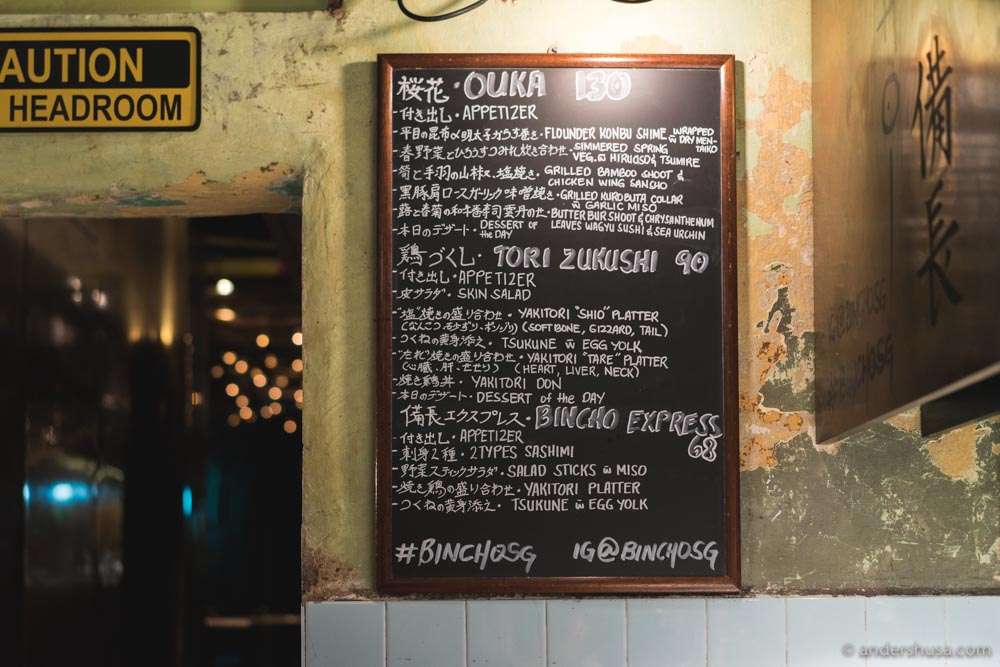 AUTION
HEADROOM
桜花・OUKA 130
-付き出し・APPETIZER
-平目の昆布〆明太子からすみ巻き・FLOUNDER KONBU SHIME WRAPPED w DRY MEN-TAIKO
-春野菜とひろうすつみれ炊き合わせ・SIMMERED SPRING VEG. w HIRUOSO & TSUMIRE
-筍と手羽の山椒 塩焼き・GRILLED BAMBOO SHOOT & CHICKEN WING SANSHO
-黒豚肩ロースガーリック味噌焼き・GRILLED KUROBUTA COLLAR w GARLIC MISO
-蕗と春菊の和牛寿司雲丹のせ・BUTTER BUR SHOOT & CHRYSANTHENUM LEAVES WAGYU SUSHI & SEA URCHIN
-本日のデザート・DESSERT OF the DAY
鶏づくし・TORI ZUKUSHI 90
-付き出し・APPETIZER
-皮サラダ・SKIN SALAD
-"塩"焼きの盛り合わせ・YAKITORI "SHIO" PLATTER
(なんこつ・砂ずり・ボンジリ) (SOFTBONE, GIZZARD, TAIL)
-つくねの黄身添え・TSUKUNE w EGG YOLK
-"たれ"焼きの盛り合わせ・YAKITORI "TARE" PLATTER
(心臓・肝・せせり) (HEART, LIVER, NECK)
-焼き鶏丼・YAKITORI DON
-本日のデザート・DESSERT of the DAY
備長エクスプレス・BINCHO EXPRESS 68
-付き出し・APPETIZER
-刺身2種・2TYPES SASHIMI
-野菜スティックサラダ・SALAD STICKS w MISO
-焼き鶏の盛り合わせ・YAKITORI PLATTER
-つくねの黄身添え・TSUKUNE w EGG YOLK
#BINCHOSG IG@BINCHOSG
備長
© andershusa.com